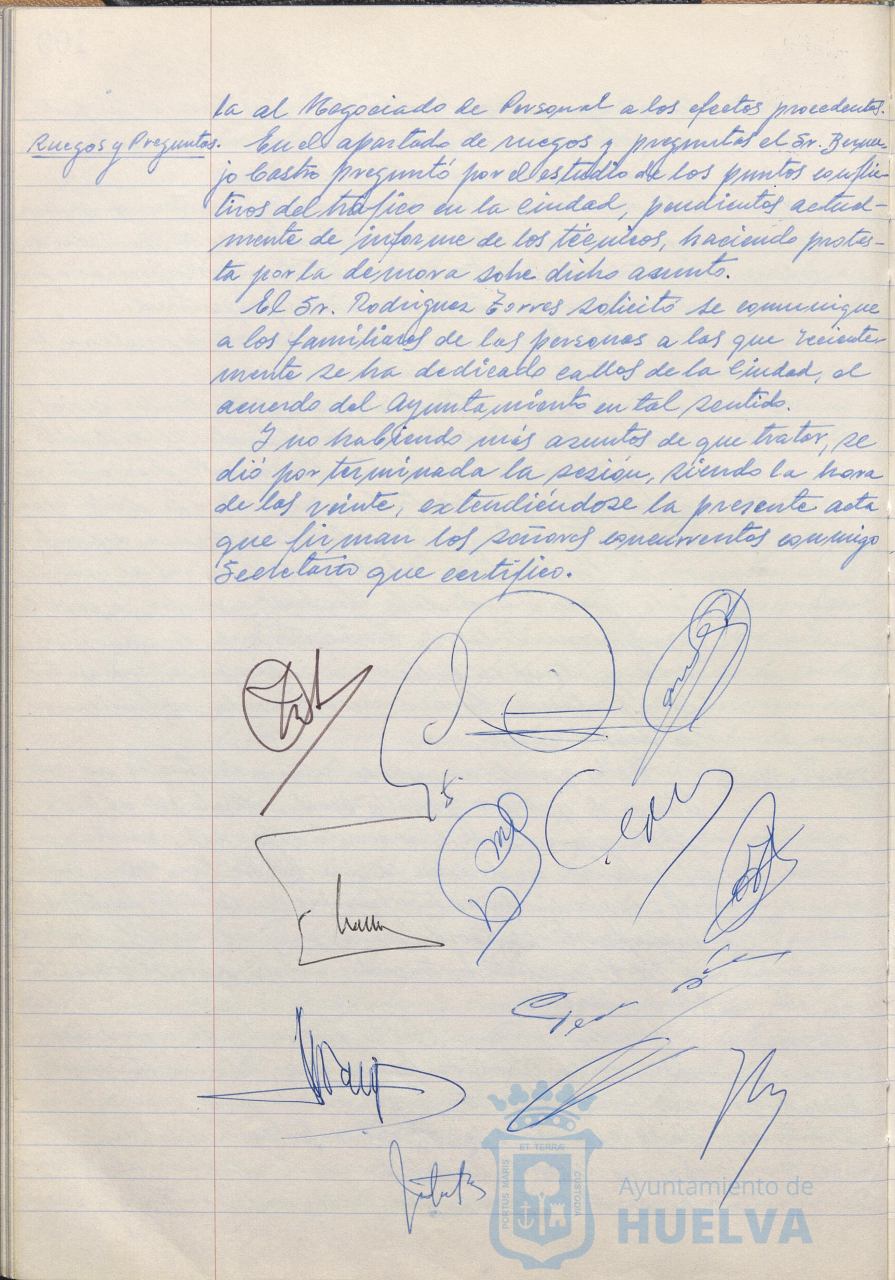 ta al Negociado de Personal a los efectos procedentes.
Ruegos y Preguntas.
En el apartado de ruegos y preguntas el Sr. Berme-
jo Castro preguntó por el estudio de los puntos conflic-
tivos del tráfico en la ciudad, pendientes actual-
mente de informe de los técnicos, haciendo protes-
ta por la demora sobre dicho asunto.
El Sr. Rodriguez Torres solicitó se comunique
a los familiares de las personas a las que reciente-
mente se ha dedicado calles de la Ciudad, el
acuerdo del Ayuntamiento en tal sentido.
Y no habiendo más asuntos de que tratar, se
dió por terminada la sesión, siendo la hora
de las veinte, extendiéndose la presente acta
que firman los señores concurrentes conmigo
Secretario que certifico.
ET TERRÆ
PORTUS MARIS
CUSTODIA
Ayuntamiento de
HUELVA